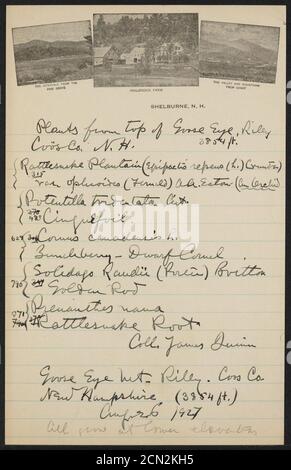 THE
PINE GROVE
PHILBROOK FARM
THE VALLEY AND MOUNTAINS
SHELBURNE, N. H.
Plants from top of Goose Eye, Riley
Coös Co. N. H. 3854 ft.
Rattlesnake Plantain (Epipactis repens (L.) Crantz)
315
var. ophioides (Fernald) A.A. Eaton (an Orchid)
Potentilla tridentata Ait.
Cinquefoil
Cornus canadensis L.
Bunchberry - Dwarf Cornel
Solidago Randii (Porter) Britton
Golden Rod
Prenanthes nana
Rattlesnake Root
Coll. James
Goose Eye Mt. - Riley. Coos Co.
New Hampshire (3854 ft.)
Aug. 26 1927
All grow at lower elevation
alamy
Image ID: 2CN2KH5
www.alamy.com